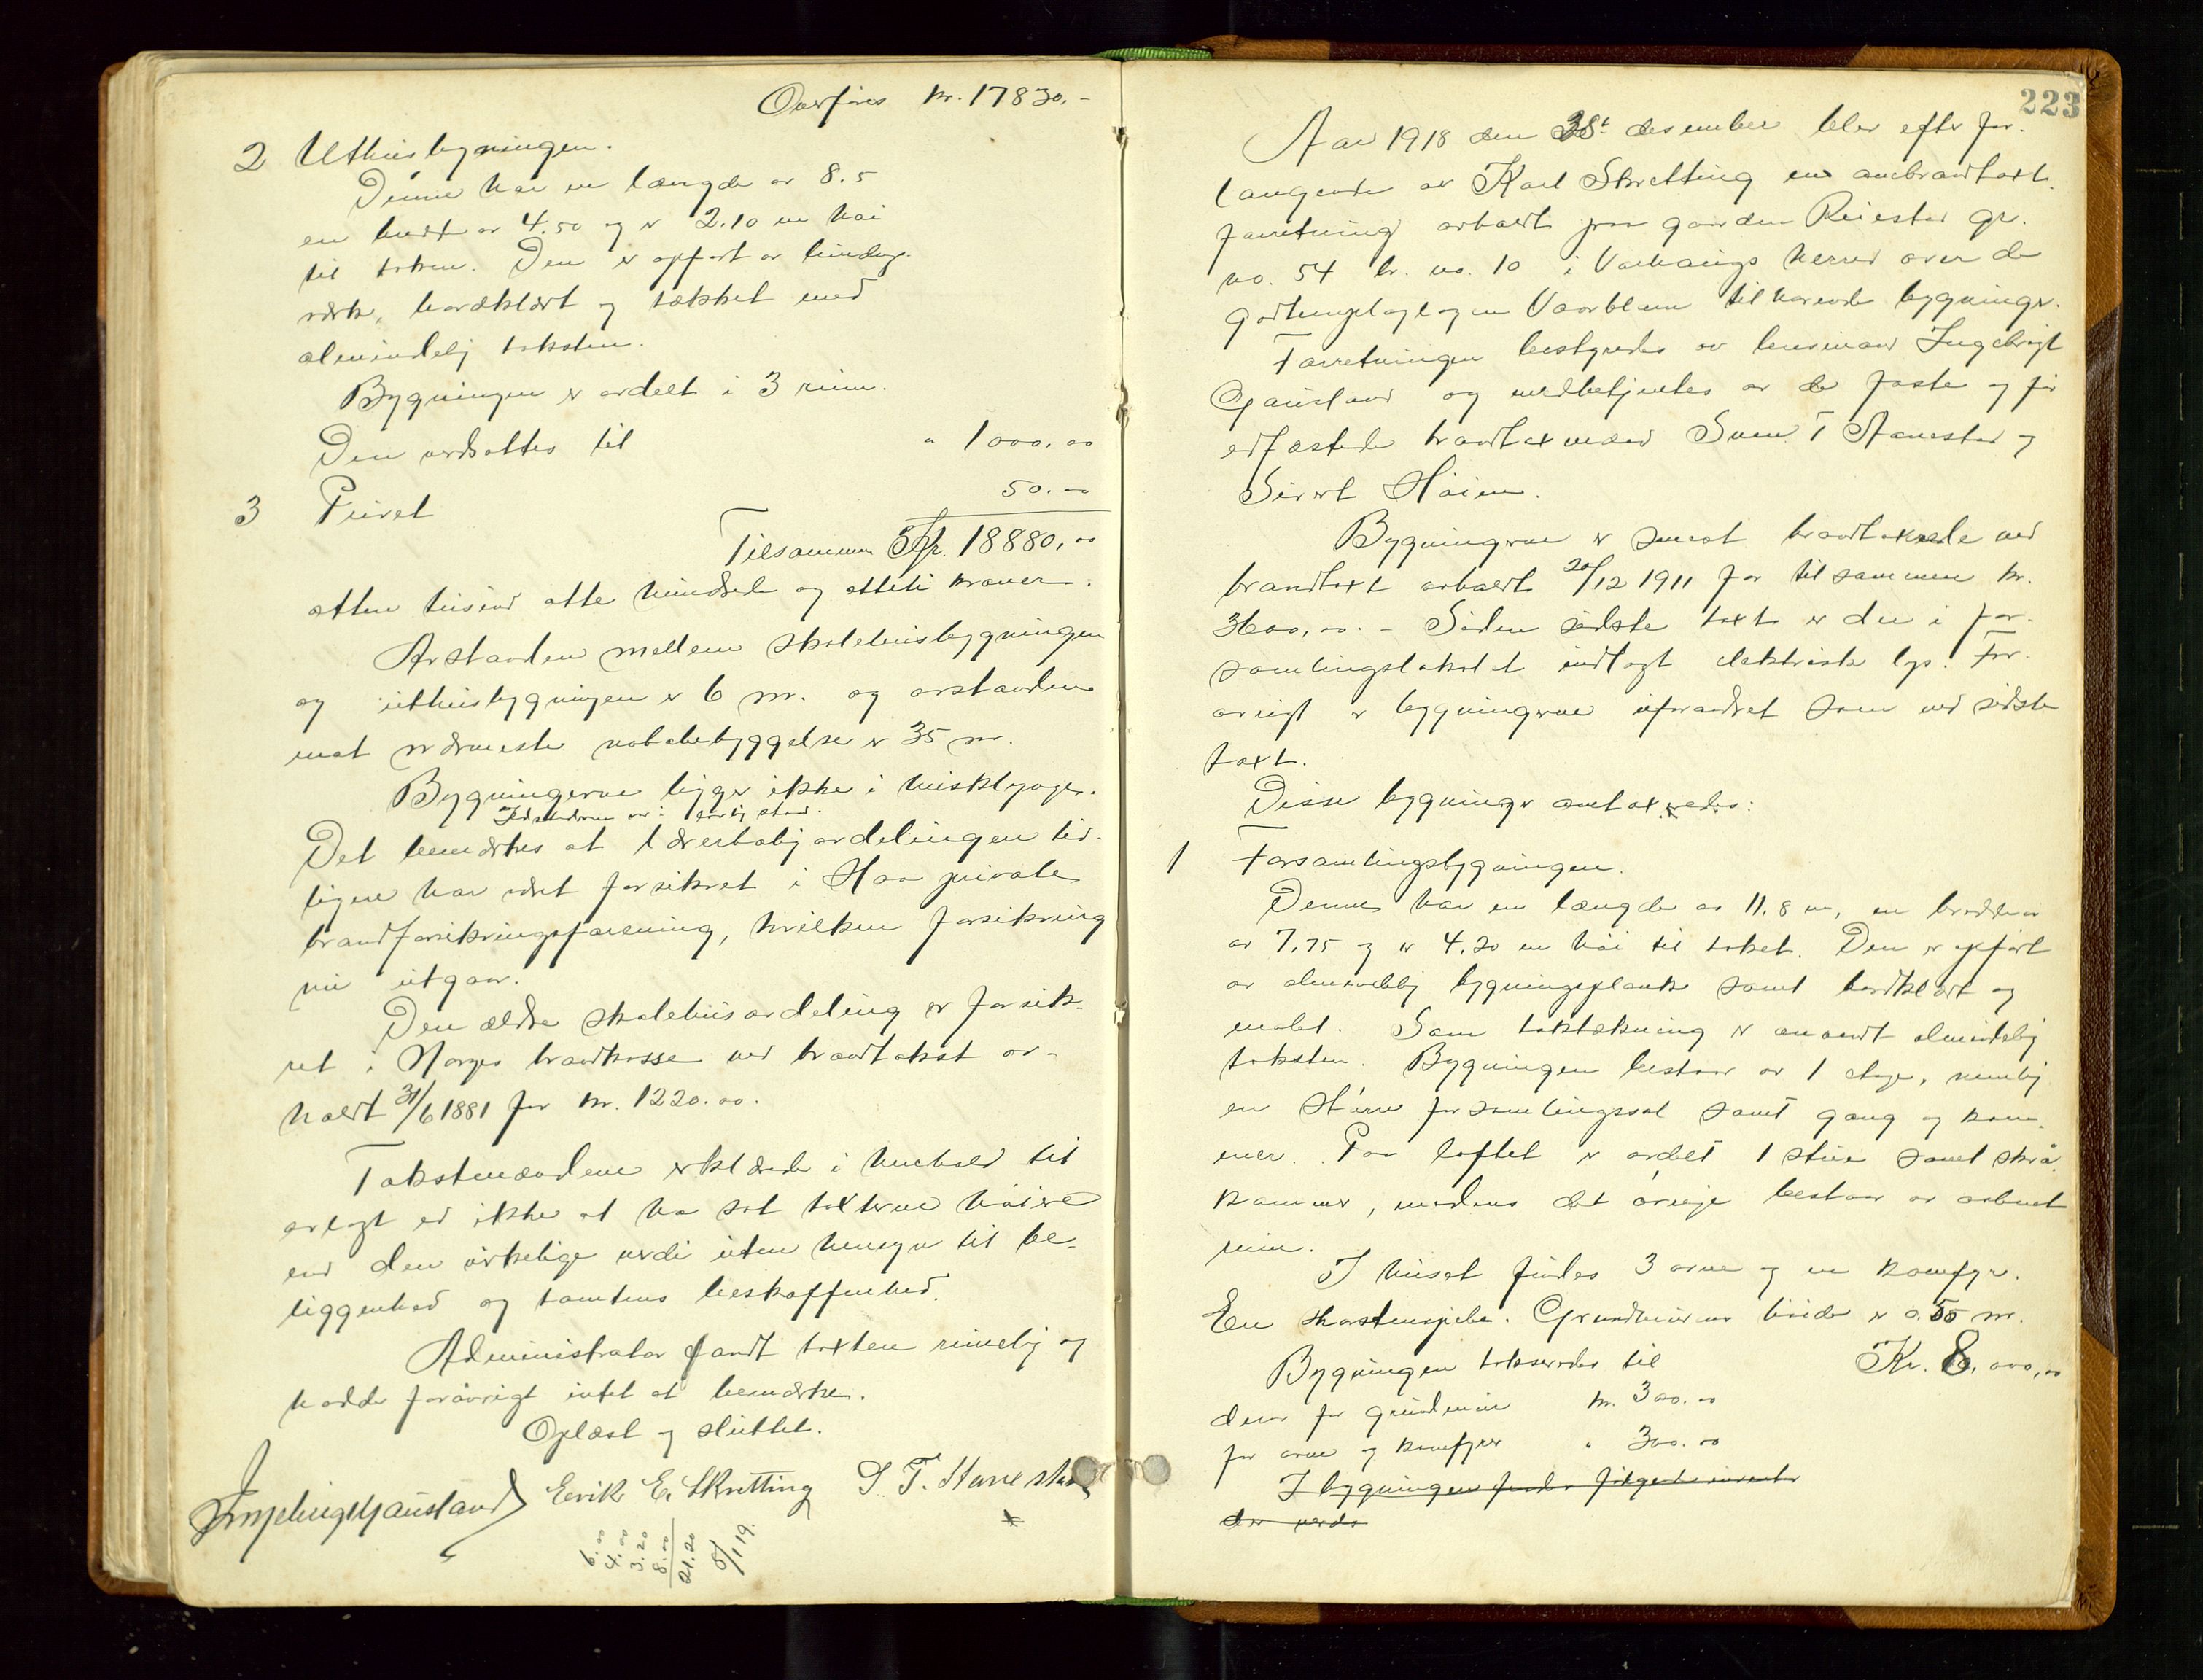 Overføres kr. 17830,-
2 Uthusbygningen.
Denne har en længde av 8.5
en bredt av 4.50 og er 2.10 m høi
til taken. Den er opført av bindings-
verk, bordklædt og tækket med
almindelig taksten.
Bygningen er avdelt i 3 rum.
Den verdsattes til " 1000.00
3 Privet 50.00
Tilsammen Kr. 18880,00
atten tusind otte hundrede og otteti kroner.
Avstanden mellem skolehusbygningen
og uthusbygningen er 6 m. og avstanden
mot nærmeste nabobebyggelse er 35 m.
Bygningerne ligger ikke i husklynge.
Ildstederne er i lovlig stand.
Det bemærkes at lærerboligavdelingen tid-
ligere har været forsikret i Haa private
brandforsikringsforening, hvilken forsikring
nu utgaar.
Den ældre skolehusavdeling er forsik-
ret i Norges brandkasse ved brandtakst av-
holdt 31/6 1881 for kr. 1220.00.
Takstmændene erklærede i henhold til
avlagt ed ikke at ha sat taxterne høiere
end den virkelige verdi uten hensyn til be-
liggenhed og tomtens beskaffenhed.
Administrator fandt taxten rimelig og
hadde forøvrigt intet at bemærke.
Oplæst og sluttet.
Ingebrigt Gausland Eerik E. Skretting S. T. Aanestad
6.00
4.00
3.20
8.00
21.20
5/1 19.
223
Aar 1918 den 30t desember blev efter for-
langende av Karl Skretting en ombrandtaxt-
forretning avholdt paa gaarden Reiestad gr.
no. 54 br. no. 10 i Varhaugs herred over de
godtemplarlogen Vaarblom tilhørende bygninger.
Forretningen bestyredes av lensmand Ingebrigt
Gausland og medbetjentes av de faste og før
edfæstede brandtaxmænd Sven T Aanestad og
Sivert Høien.
Bygningerne er senest brandtaxerede ved
brandtaxt avholdt 20/12 1911 for tilsammen kr.
3600,00. - Siden sidste taxt er der i for-
samlingslokalet indlagt elektrisk lys. For-
øvrigt er bygningerne uforandret som ved sidste
taxt.
Disse bygninger omtaxeredes:
1 Forsamlingsbygningen.
Denne har en længde av 11.8 m, en bredde
av 7.75 og er 4.20 m høi til taket. Den er opført
av almindelig bygningsplank samt bordklædt og
malet. Som taktækning er anvendt almindelig
taksten. Bygningen bestaar av 1 etage, nemlig
en større forsamlingssal samt gang og kam-
mer. Paa loftet er avdelt 1 stue samt skrå-
kammer, medens det øvrige bestaar av aabent
rum.
I huset findes 3 ovne og en komfyr.
En skorstenspibe. Grundmurens høide er 0.55 m.
Bygningen takseredes til Kr. 8.000,00
derav for grundmur kr. 300.00
for ovne og komfyrer " 300.00
I bygningen findes følgende
der verdi